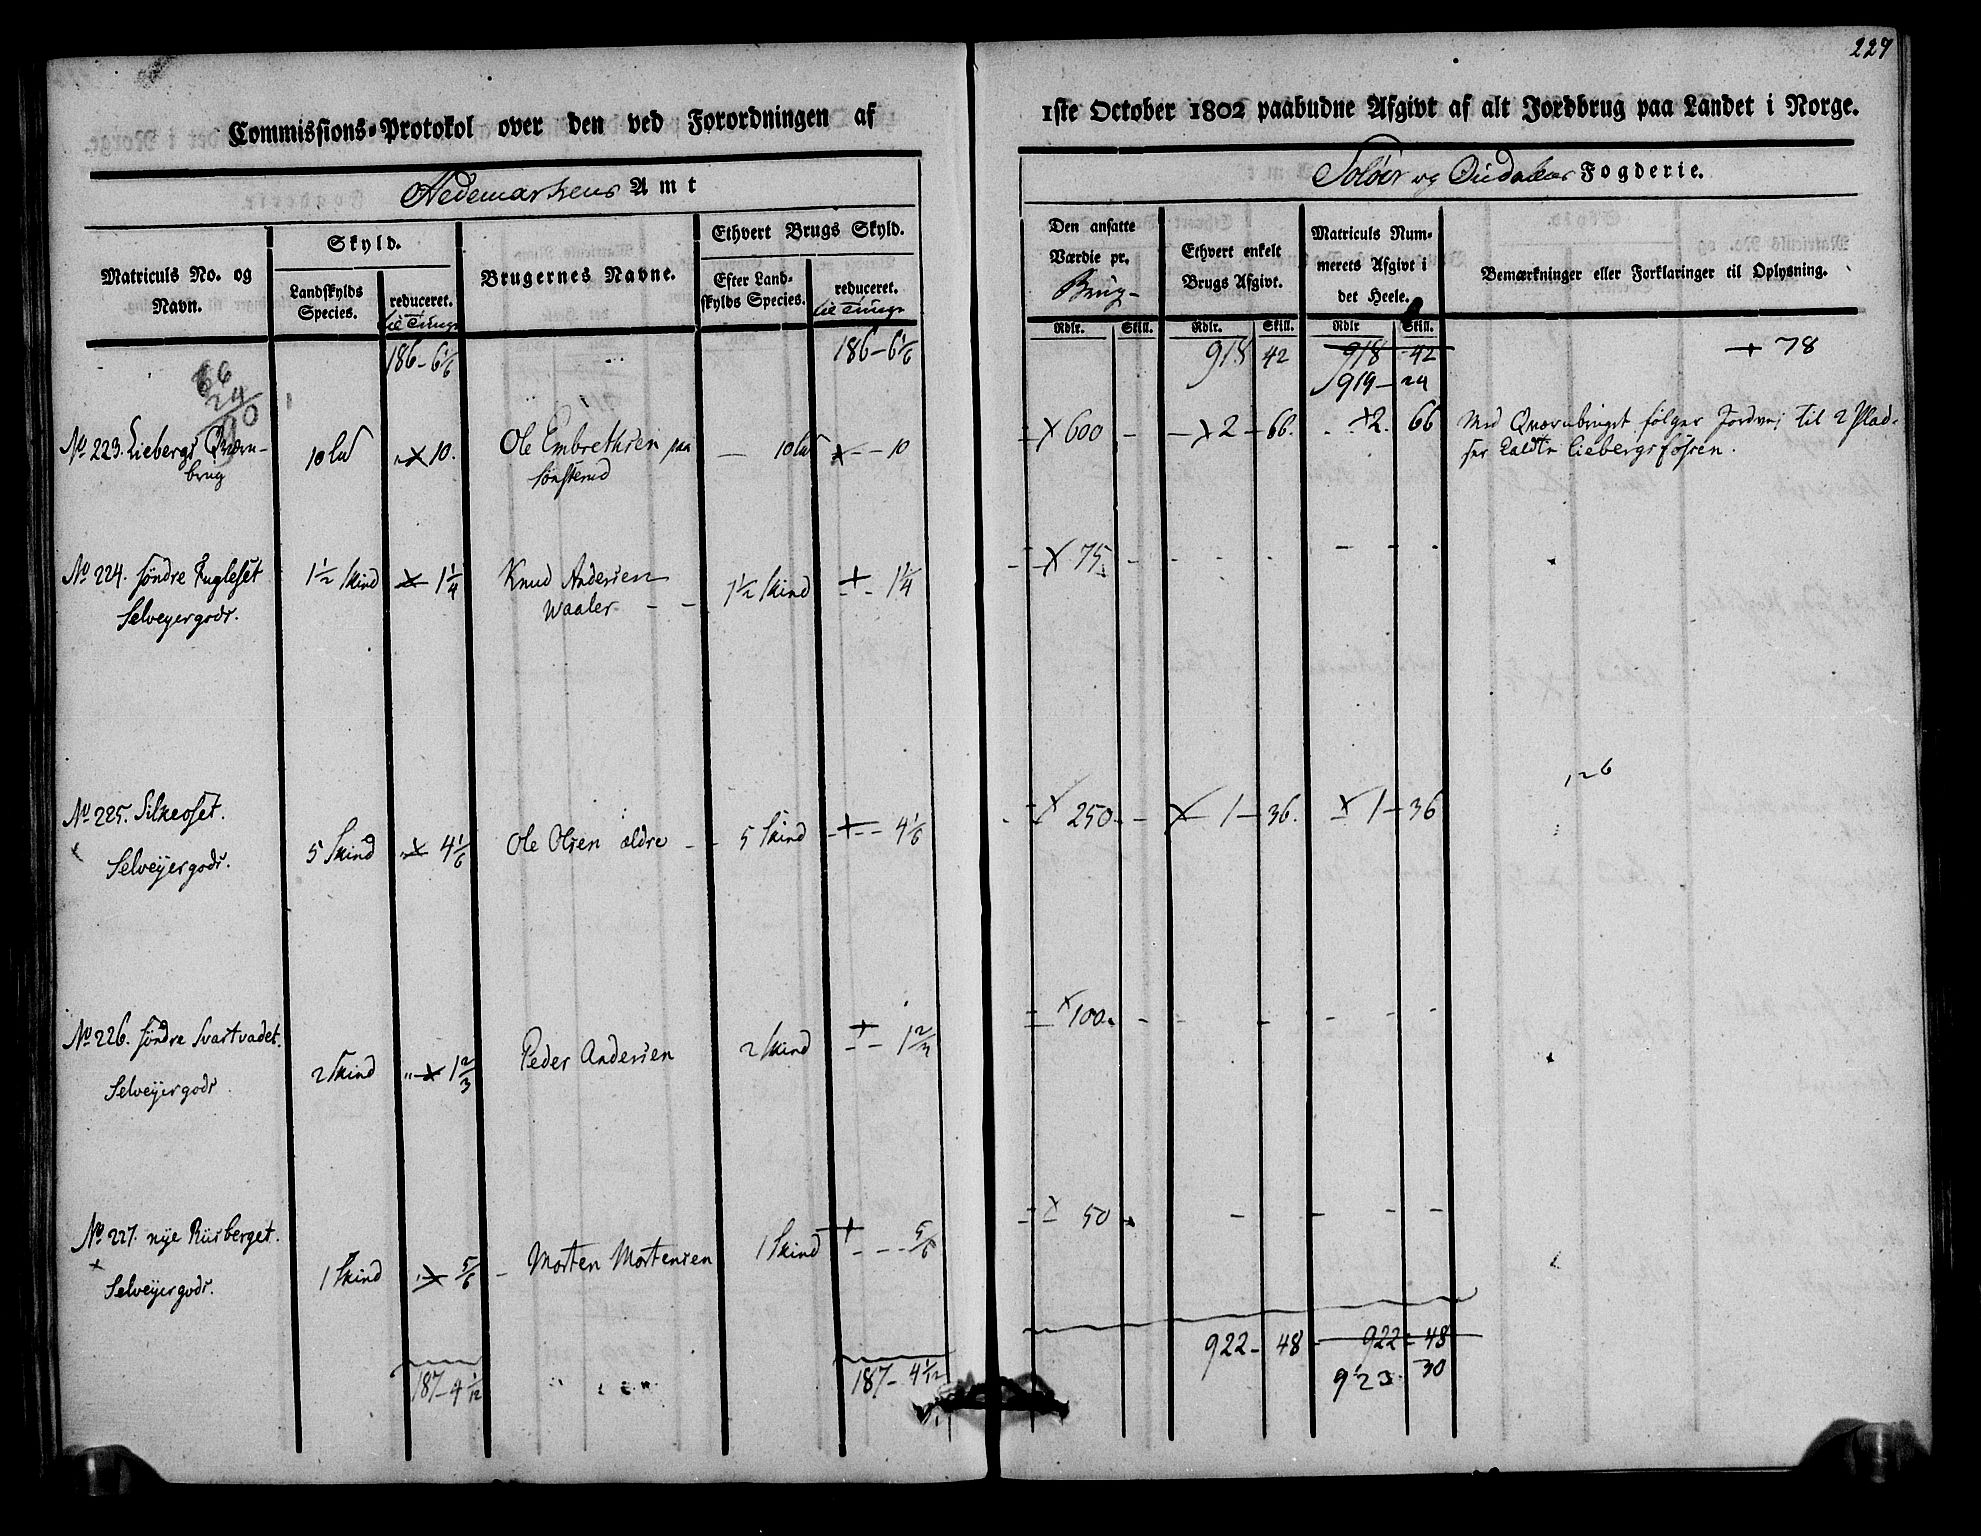 229
Commissions-Protokol over den ved Forordningen af
1ste October 1802 paabudne Afgivt af alt Jordbrug paa Landet i Norge.
Hedemarkens Amt
Soløer og Oudalens Fogderie.
Matriculs No. og Navn.
Skyld.
Landskylds Species.
reduceret.
til Tunge
Brugernes Navne.
Ethvert Brugs Skyld.
Efter Landskylds Species.
reduceret.
til Tunge
Den ansatte Værdie pr.
Brug
Ethvert enkelt Brugs Afgivt.
Matriculs Nummerets Afgivt i det Heele.
Bemærkninger eller Forklaringer til Oplysning.
Rdlr. Skill. Rdlr. Skill. Rdlr Skill.
186 - 6 1/6 186 - 6 1/6 918 42 918 - 42 + 78
919 - 24
66
24
No 223. Liebergs Qværn- 10 ld x 10. Ole Embrethsen paa — 10 ld x - - 10 x 600 - x 2 - 66. x 2. 66 Med Qværnbruget følger Jordvei til 2 Plad-
brug Sønsterud ser kaldte Liebergsfossen.
No 224. søndre Fugleset 1 1/2 Skind x 1 1/4 Knud Andersen 1 1/2 Skind + 1 1/4 x 75
Selveyergods. Waaler
126
No 225. Silkeoset. 5 Skind x 4 1/6 Ole Olsen ældre 5 Skind + 4 1/6 x 250 x 1 - 36. x 1 - 36
Selveyergods.
No 226. søndre Svartvadet. 2 Skind x 1 2/3 Peder Andersen 2 Skind + 1 2/3 x 100
Selveyergods
No 227. nye Riisberget. 1 Skind x 5/6 Morten Mortensen 1 Skind + 5/6 x 50
Selveyergods.
187 - 4 1/12 187 - 4 1/12 922 - 48 922 - 48
923. 30